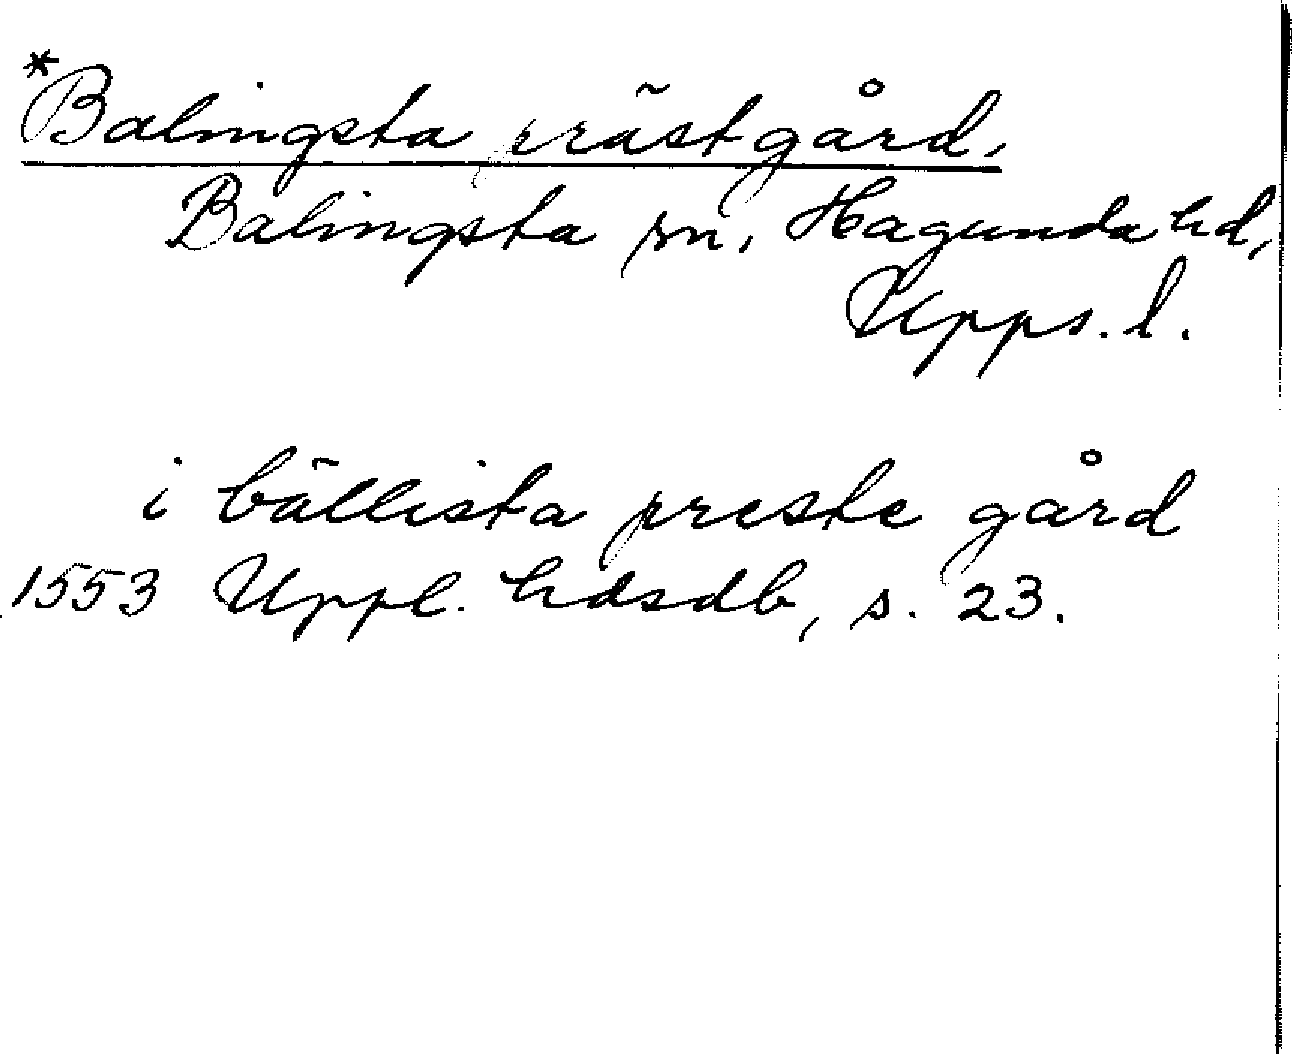 *Balingsta prästgård,
Balingsta sn, Hagunda hd,
Upps. l.
i bällista preste gård
1553 Uppl. hdsdb, s. 23.